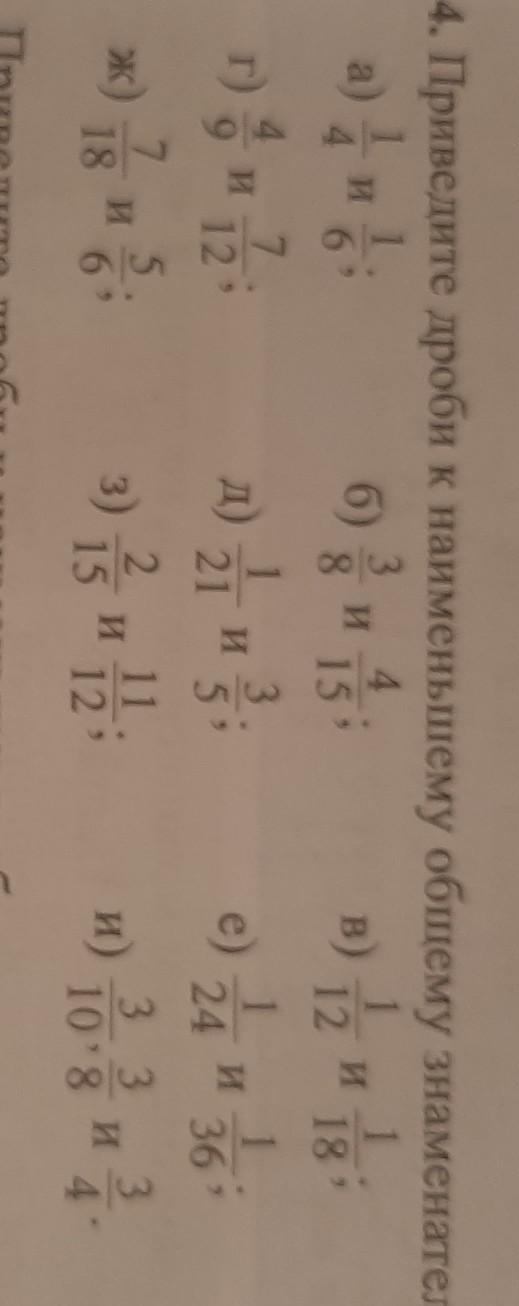 4. Приведите дроби к наименьшему общему знаменател
а) 1/4 и 1/6; б) 3/8 и 4/15; в) 1/12 и 1/18;
г) 4/9 и 7/12; д) 1/21 и 3/5; е) 1/24 и 1/36;
ж) 7/18 и 5/6; з) 2/15 и 11/12; и) 3/10, 3/8 и 3/4.